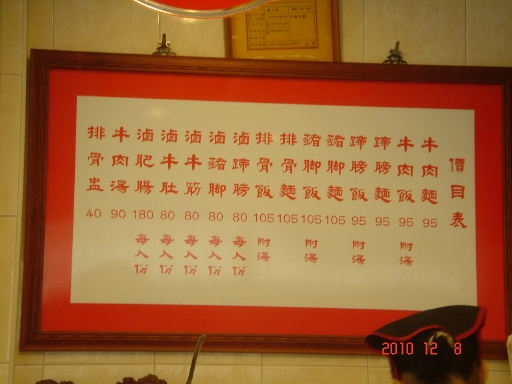 價目表
牛肉麵 95
牛肉飯 95 附湯
蹄膀麵 95
蹄膀飯 95 附湯
豬腳麵 105
豬腳飯 105 附湯
排骨麵 105
排骨飯 105 附湯
滷蹄膀 80 每人份
滷豬腳 80 每人份
滷牛筋 80 每人份
滷牛肚 80 每人份
滷肥腸 180 每人份
牛肉湯 90
排骨盅 40
2010 12 8